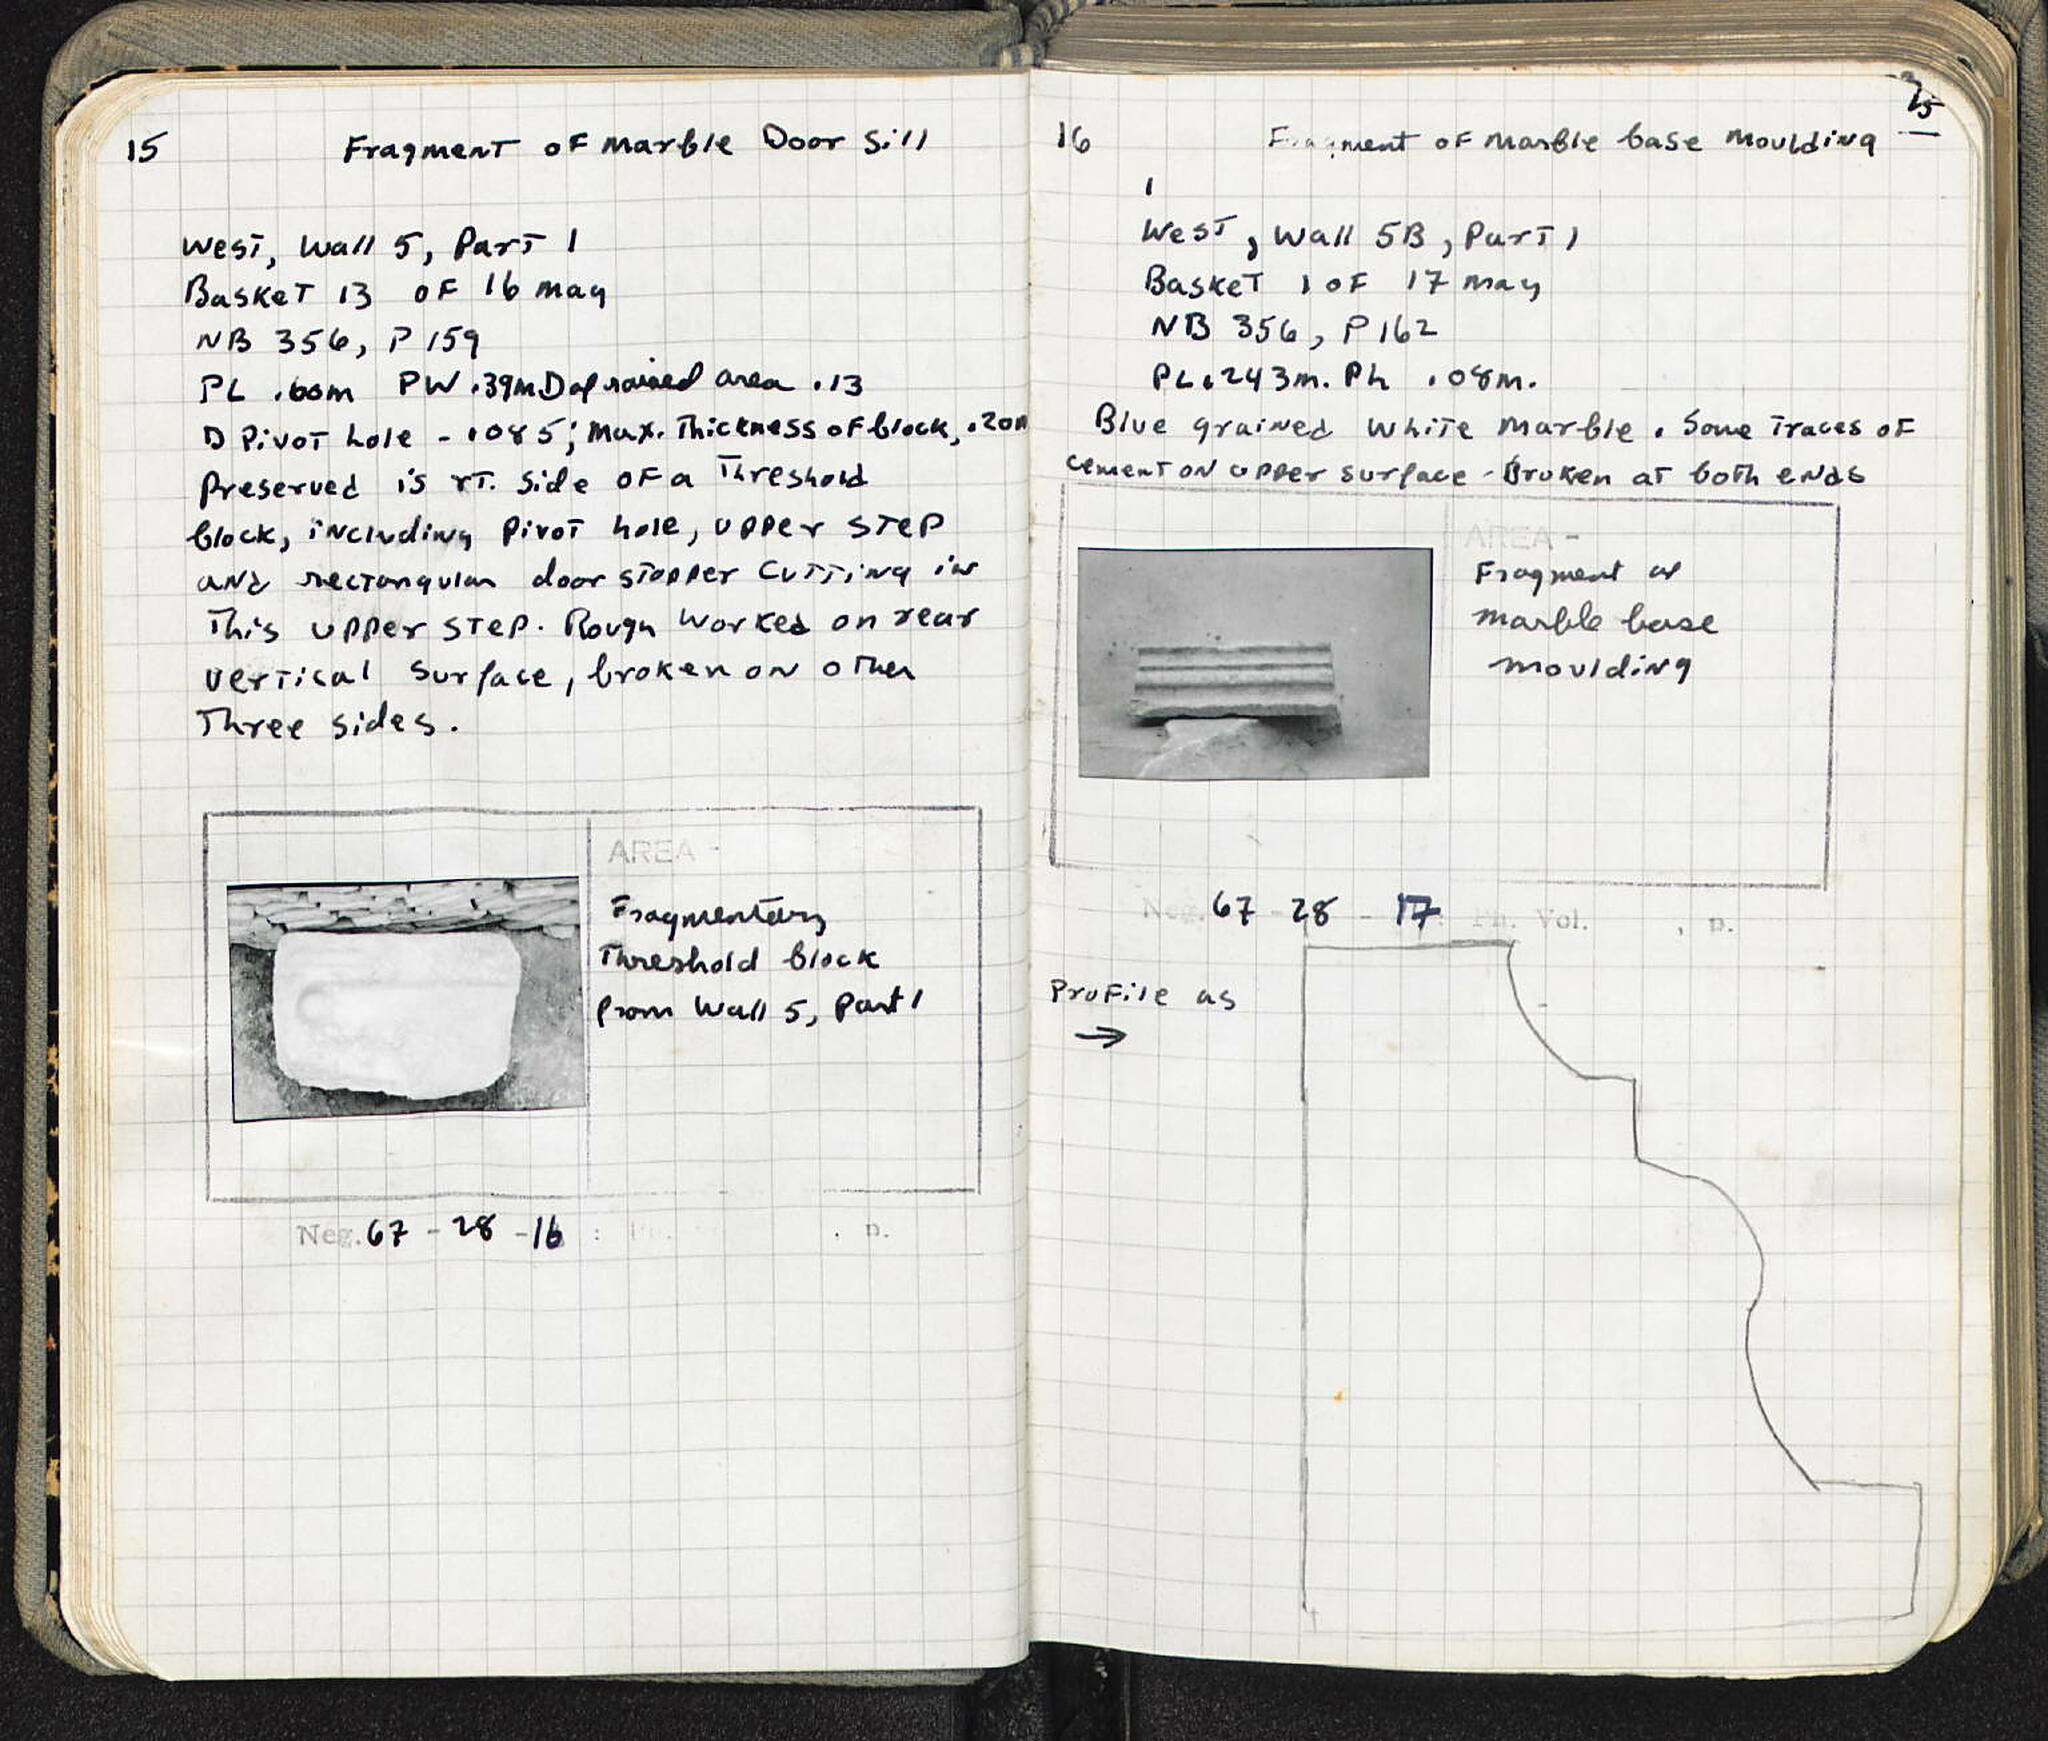 15 Fragment of marble Door Sill
West, Wall 5, Part 1
Basket 13 of 16 may
NB 356, P 159
PL .60m PW .39m D of raised area .13
D Pivot hole - .085; Max. Thickness of block, .20m
Preserved is rt. side of a Threshold
block, including pivot hole, upper step
and rectangular door stopper cutting in
This upper step. Rough worked on rear
vertical surface, broken on other
Three sides.
AREA -
Fragmentary
Threshold block
from Wall 5, Part 1
Neg. 67 - 28 - 16 : . p.
15
16 Fragment of marble base moulding
1
West, Wall 5B, Part 1
Basket 1 of 17 may
NB 356, P 162
PL .243m. Ph .08m.
Blue grained white marble. Some traces of
cement on upper surface - Broken at both ends
AREA -
Fragment of
marble base
moulding
Neg. 67 - 28 - 17 : Ph. Vol. , p.
Profile as
→